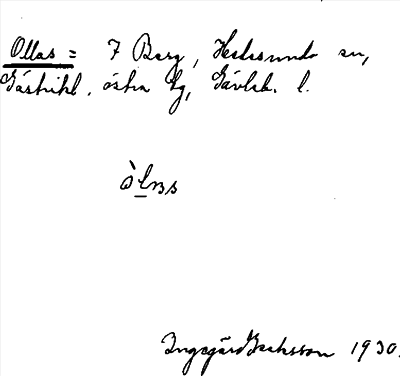 Ollas = 7 Berg, Hedesunda sn,
Gästrikl. östra tg, Gävleb. l.
òlas
Ingegärd Isaksson 1930.